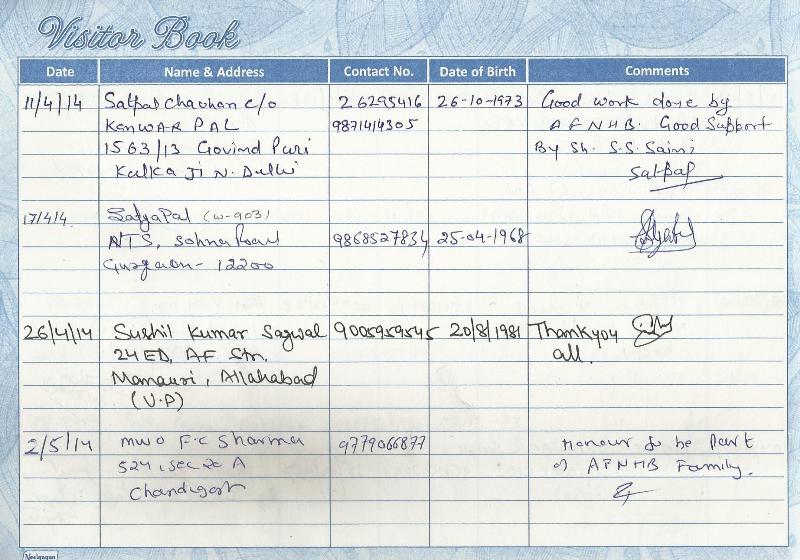 Visitor Book
Date Name & Address Contact No. Date of Birth Comments
11/4/14 Satpal Chauhan c/o 26295416 26-10-1973 Good work done by
KANWAR PAL 9871414305 AFNHB. Good Support
1563/13 Govind Puri By Sh. S.S. Saini
Kalka Ji N. Delhi Satpal
17/4/14 SatyaPal (W-903)
ATS, Sohna Road 9868527834 25-04-1968
Gurgaon- 12200
26/4/14 Sushil Kumar Sagwal 9005959545 20/8/1981 Thankyou
24 ED, AF Stn. all.
Manauri, Allahabad
(U.P)
2/5/14 MWO F.C Sharma 9779066877 Honour to be part
524, Sec 20 A of AFNHB Family.
Chandigarh
Neelgagan